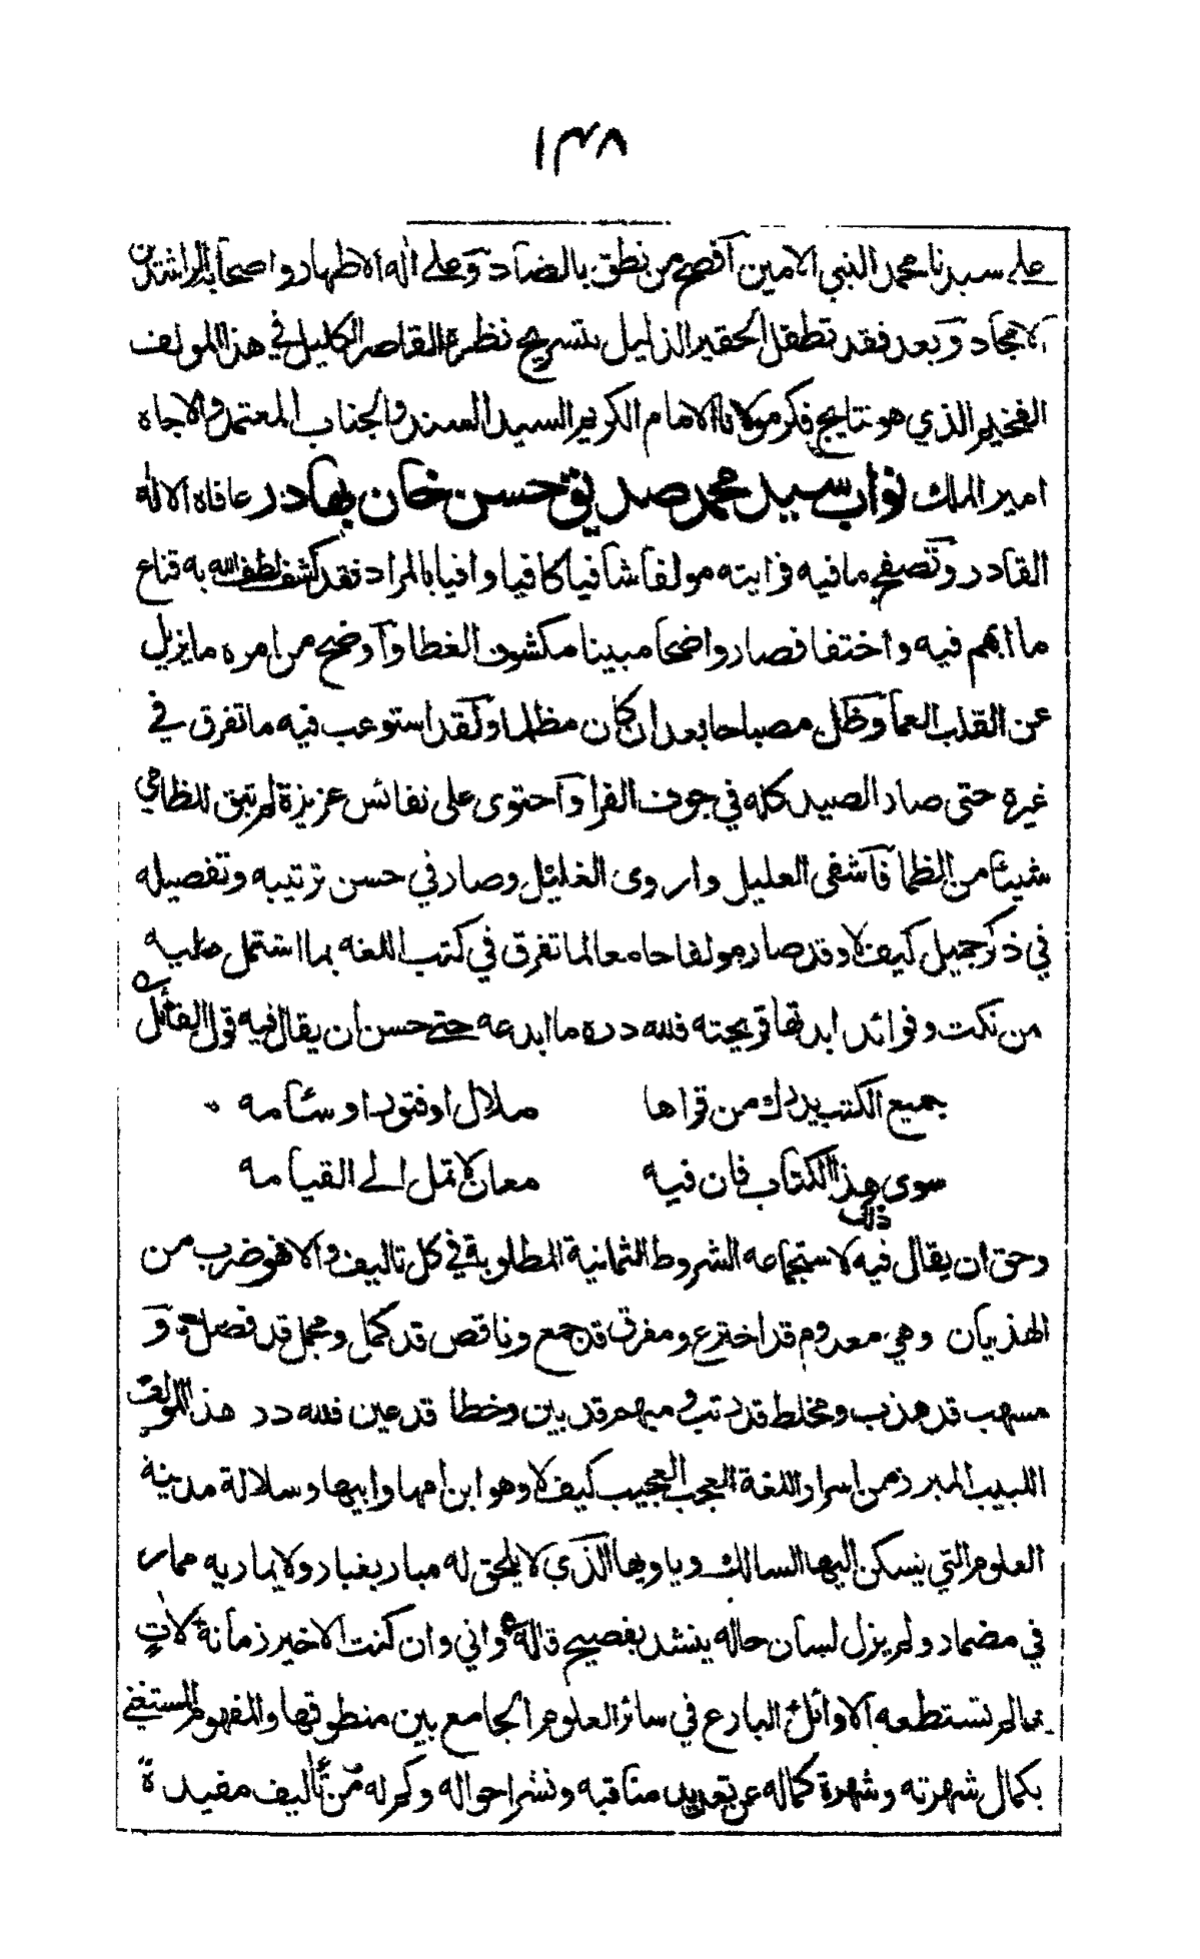 ١٣٨
على سيدنا محمد النبي الامين افصح من نطق بالضاد وعلى اله الاطهار واصحابه الراشدين
الامجاد وبعد فقد تطفل الحقير الذليل بتسريح نظره القاصر الكليل في هذا المولف
الفخيم الذي هو نتايج فكر مولانا الامام الكريم السيد السند والجناب المعتمد والاجاه
امير الملك نواب سيد محمد صديق حسن خان بهادر عافاه الاله
القادر وتصفح ما فيه فرايته مولفا شافيا كافيا وافيا بالمراد فقد كشف لطف الله به قناع
ما ابهم فيه واختفا فصار واضحا مبينا مكشوف الغطا واوضح من امره ما يزيل
عن القلب العما وظل مصباحا بعد ان كان مظلما ولقد استوعب فيه ما تفرق في
غيره حتى صاد الصيد كله في جوف الفرا واحتوى على نفائس عزيزة لم تبق للظامي
شيئا من الظما فاشفى العليل واروى الغليل وصار في حسن ترتيبه وتفصيله
في ذكر جميل كيف لا وقد صار مولفا جامعا لما تفرق في كتب اللغه بما اشتمل عليه
من نكت وفوائد ابدتها قريحته فلله دره ما ابدعه حتى حسن ان يقال فيه قول القائل
جميع الكتب يدرك من قراها ملال او فتور او سئامه
سوى هذا الكتاب فان فيه معان لا تمل الى القيامه
وحق ان يقال فيه ذلك لاستجماعه الشروط الثمانية المطلوبة في كل تاليف والا فهو ضرب من
الهذيان وهي معدوم قد اخترع ومفرق قد جمع وناقص قد كمل ومجمل قد فصل و
مسهب قد هذب ومخلط قد رتب ومبهم قد بين وخطا قد عين فلله در هذا المولف
اللبيب المبرز من اسرار اللغة العجب العجيب كيف لا وهو ابن امها وابيها وسلالة مدينة
العلوم التي يسكن اليها السالك وياويها الذي لا يلحق له مبار بغبار ولا يماريه ممار
في مضمار ولم يزل لسان حاله ينشد بفصيح قاله ع واني وان كنت الاخير زمانه لاتٍ
بما لم تستطعه الاوائل البارع في سائر العلوم الجامع بين منطوقها والمفهوم المستغني
بكمال شهرته وشهرة كماله عن تعديد مناقبه ونشر احواله وكم له من تأليف مفيدة